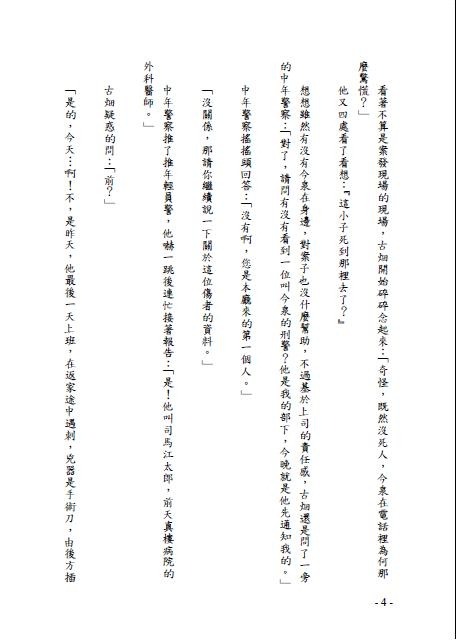 看著不算是案發現場的現場，古畑開始碎碎念起來：「奇怪，既然沒死人，今泉在電話裡為何那
麼驚慌？」
他又四處看了看想：『這小子死到那裡去了？』
想想雖然有沒有今泉在身邊，對案子也沒什麼幫助，不過基於上司的責任感，古畑還是問了一旁
的中年警察：「對了，請問有沒有看到一位叫今泉的刑警？他是我的部下，今晚就是他先通知我的。」
中年警察搖搖頭回答：「沒有啊，您是本廳來的第一個人。」
「沒關係，那請你繼續說一下關於這位傷者的資料。」
中年警察推了推年輕員警，他嚇一跳後連忙接著報告：「是！他叫司馬江太郎，前天真樓病院的
外科醫師。」
古畑疑惑的問：「前？」
「是的，今天…啊！不，是昨天，他最後一天上班，在返家途中遇刺，兇器是手術刀，由後方插
- 4 -